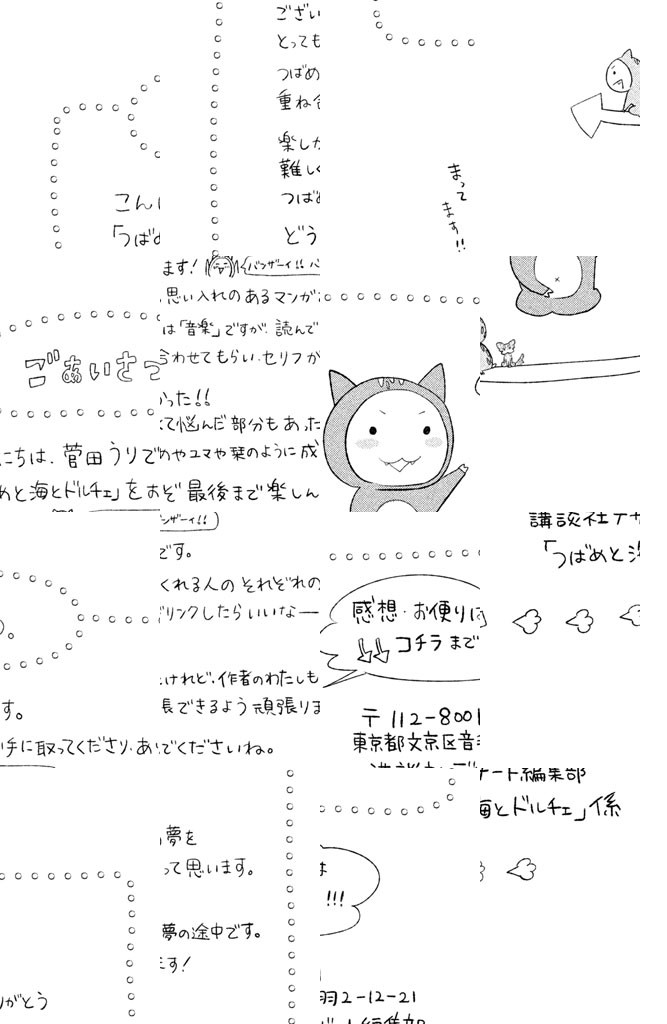 こん
「つばめ
ござい
とっても
つばめ
重ね合
楽しか
難しく
つばめ
どう
まって
ます!!
ごあいさつ
にちは、菅田うりで
めと海とドルチェ」をお
ます!
バンザーイ!! バ
思い入れのあるマンガ
は「音楽」ですが、読んで
合わせてもらい、セリフが
かった!!
て悩んだ部分もあった
めやユマや栞のように成
ぞ最後まで楽しん
す。
手に取ってくださり、あ
ンザーイ!!
です。
くれる人のそれぞれの
リンクしたらいいなー
けれど、作者のわたしも
長できるよう頑張りま
でくださいね。
感想・お便りは
コチラまで
〒112-8001
東京都文京区音
講談社デザ
「つばめと海
りがとう
夢を
って思います。
夢の途中です。
ます!
は
!!!
羽2-12-21
ート編集部
海とドルチェ」係